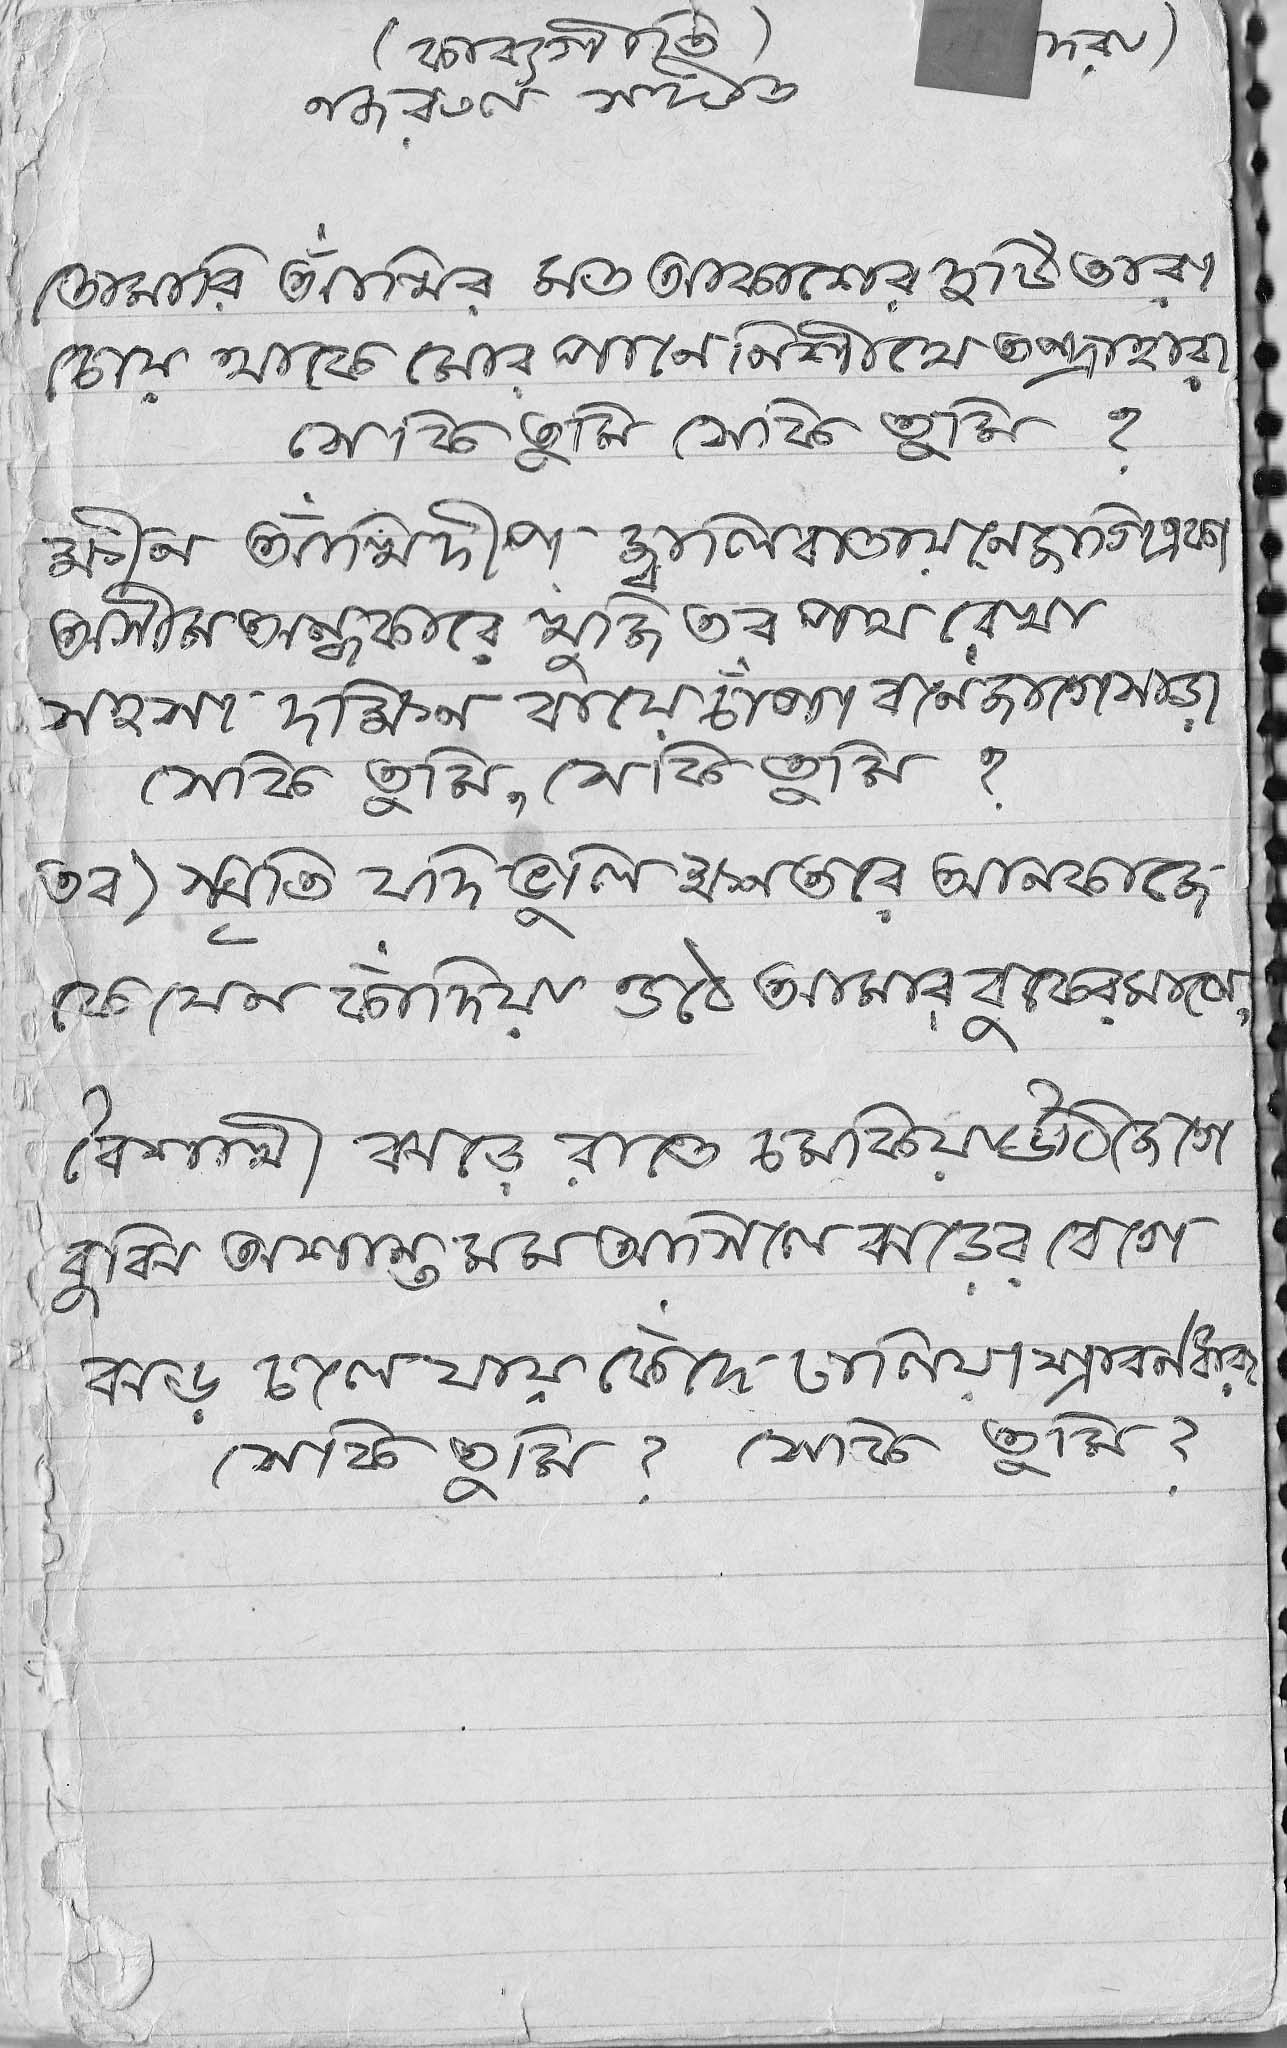 (কাব্যগীতি) দরা)
নজরুল সংগীত
তোমারি আঁখির মত আকাশের দুটি তারা
চেয়ে থাকে মোর পানে নিশীথে তন্দ্রাহারা
সেকি তুমি সেকি তুমি ?
ক্ষীন আঁখিদীপ জ্বালি বাতায়নে জাগি একা
অসীম অন্ধকারে খুজি তব পথ রেখা
সহসা দক্ষিন বায়ে চাঁপা বনে জাগে সাড়া
সেকি তুমি, সেকি তুমি ?
তব) স্মৃতি যদি ভুলি ক্ষণতরে আনকাজে
কে যেন কাঁদিয়া ওঠে আমার বুকের মাঝে,
বৈশাখী ঝড়ে রাতে চমকিয়া উঠি জেগে
বুঝি অশান্ত মম আসিলে ঝড়ের বেগে
ঝড় চলে যায় কেঁদে ঢালিয়া শ্রাবনধারা
সেকি তুমি ? সেকি তুমি ?